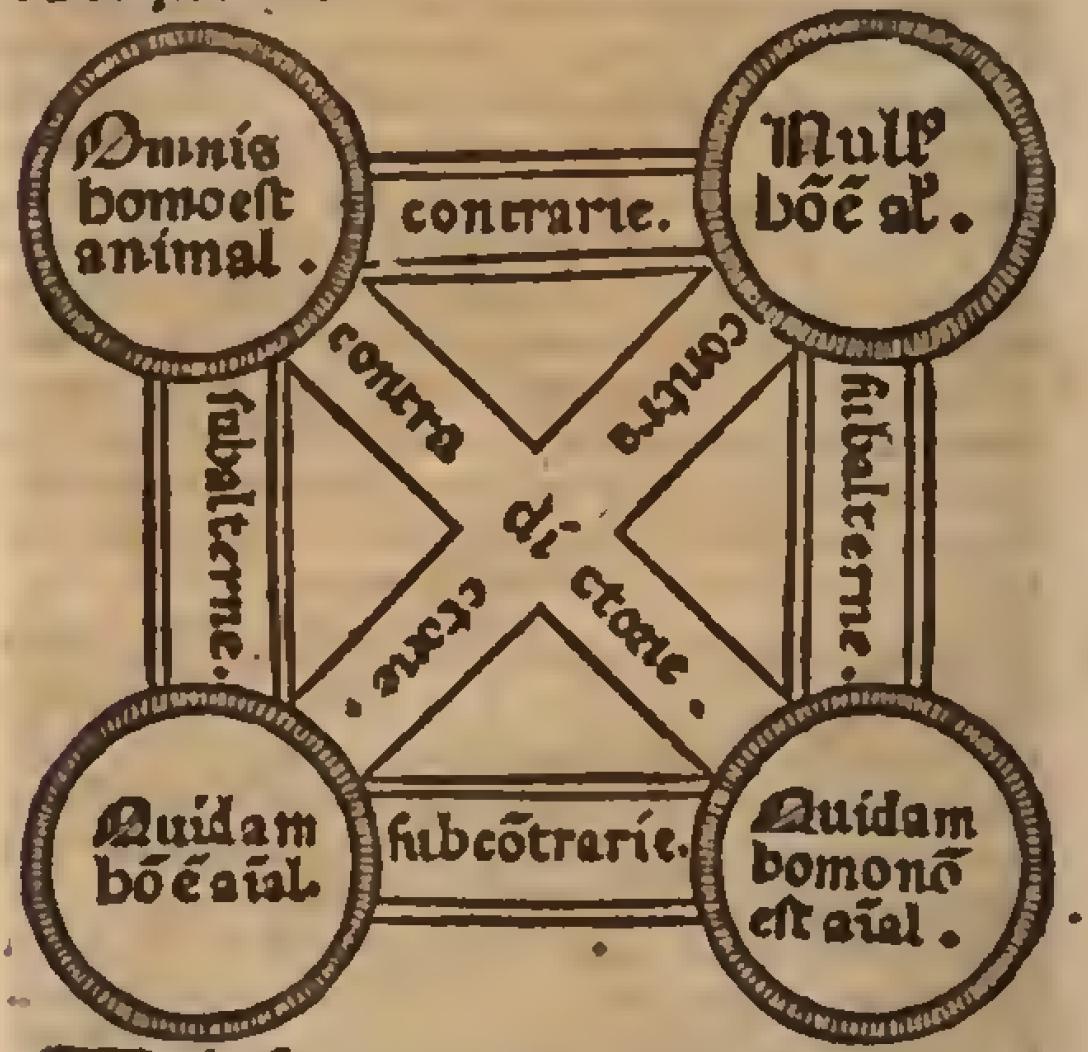 Omnis
homo est
animal .
contrarie.
Nullꝰ
hõ ẽ al̃ .
contra
contra
subalterne.
subalterne.
di-
ctorie .
ctorie .
Quidam
hõ ẽ aĩal.
subcõtrarie.
Quidam
homo nõ
est aĩal .